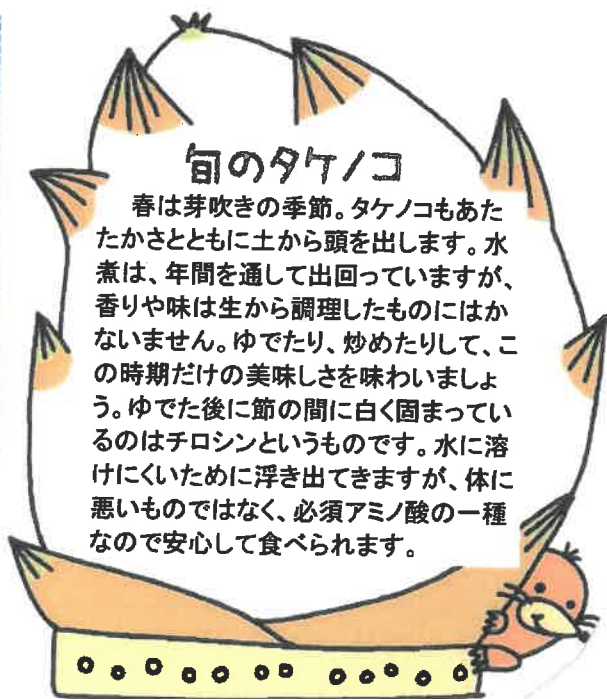 旬のタケノコ
春は芽吹きの季節。タケノコもあた
たかさとともに土から頭を出します。水
煮は、年間を通して出回っていますが、
香りや味は生から調理したものにはか
ないません。ゆでたり、炒めたりして、こ
の時期だけの美味しさを味わいましょ
う。ゆでた後に節の間に白く固まってい
るのはチロシンというものです。水に溶
けにくいために浮き出てきますが、体に
悪いものではなく、必須アミノ酸の一種
なので安心して食べられます。